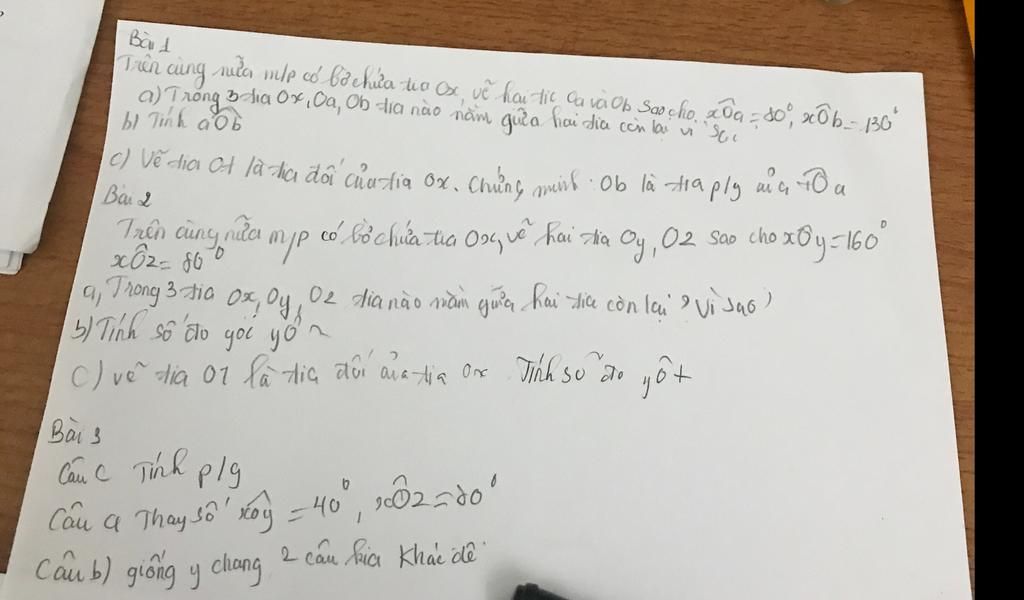 Bài 1
Trên cùng nửa m/p có bờ chứa tia Ox, vẽ hai tia Oa và Ob sao cho xÔa = 80⁰, xÔb = 130⁰
a) Trong 3 tia Ox, Oa, Ob tia nào nằm giữa hai tia còn lại vì sao
b) Tính aÔb
c) Vẽ tia Ot là tia đối của tia Ox. Chứng minh: Ob là tia p/g của tÔa
Bài 2
Trên cùng nửa m/p có bờ chứa tia Ox, vẽ hai tia Oy, Oz sao cho xÔy = 160⁰
xÔz = 80⁰
a, Trong 3 tia Ox, Oy, Oz tia nào nằm giữa hai tia còn lại? Vì sao?
b) Tính số đo góc yÔz
c) vẽ tia Ot là tia đối của tia Ox Tính số đo yÔt
Bài 3
Câu c Tính p/g
Câu a Thay số xÔy = 40⁰, xÔz = 80⁰
Câu b) giống y chang 2 câu kia khác đề